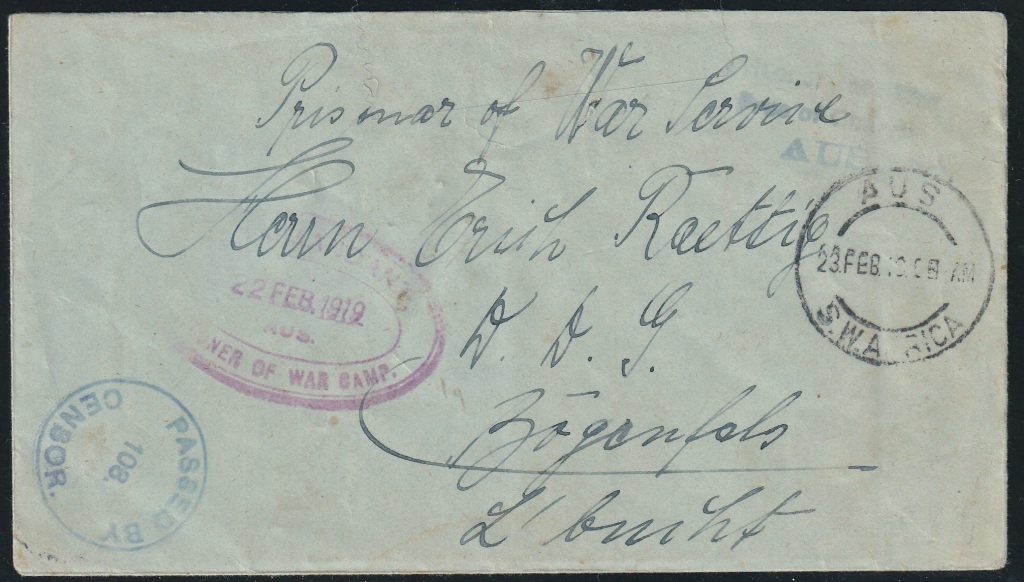 Prisonar of War Servive
Herrn Erich Raettig
D. D. G.
Bögenfels
L'bucht
AUS
AUS
23.FEB.19. AM
S.W.A RICA
22 FEB.1919
AUS.
NER OF WAR CAMP.
PASSED BY
108.
CENSOR.